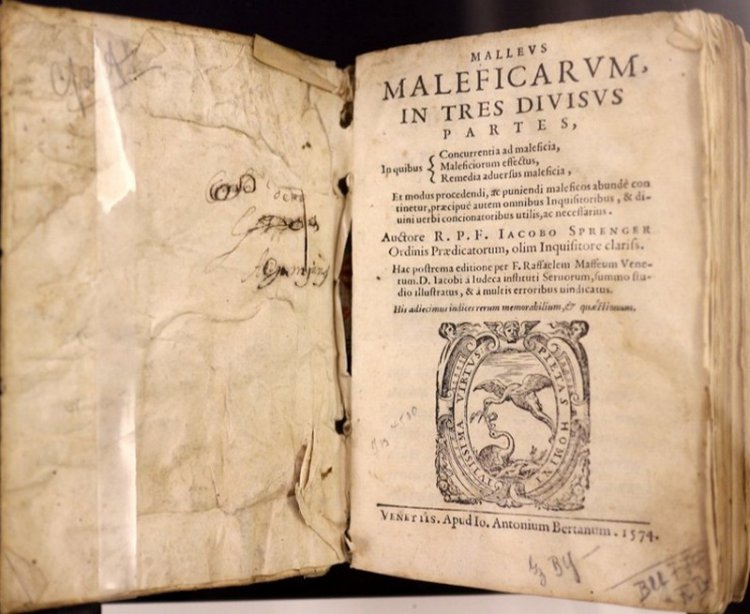 MALLEVS
MALEFICARVM,
IN TRES DIVISVS
PARTES,
In quibus { Concurrentia ad maleficia,
Maleficiorum effectus,
Remedia aduersus maleficia,
Et modus procedendi, ac puniendi maleficos abundè con
tinetur, præcipuè autem omnibus Inquisitoribus, & di-
uini uerbi concionatoribus utilis, ac necessarius.
Auctore R. P. F. IACOBO SPRENGER
Ordinis Prædicatorum, olim Inquisitore clariss.
Hac postrema editione per F. Raffaelem Maffeum Vene-
tum. D. Iacobi a Iudeca instituti Seruorum, summo stu-
dio illustratus, & à multis erroribus uindicatus.
His adiecimus indices rerum memorabilium, & quæstionum.
PIETAS HOMINI TVTISSIMA VIRTVS
VENETIIS. Apud Io. Antonium Bertanum. 1574.